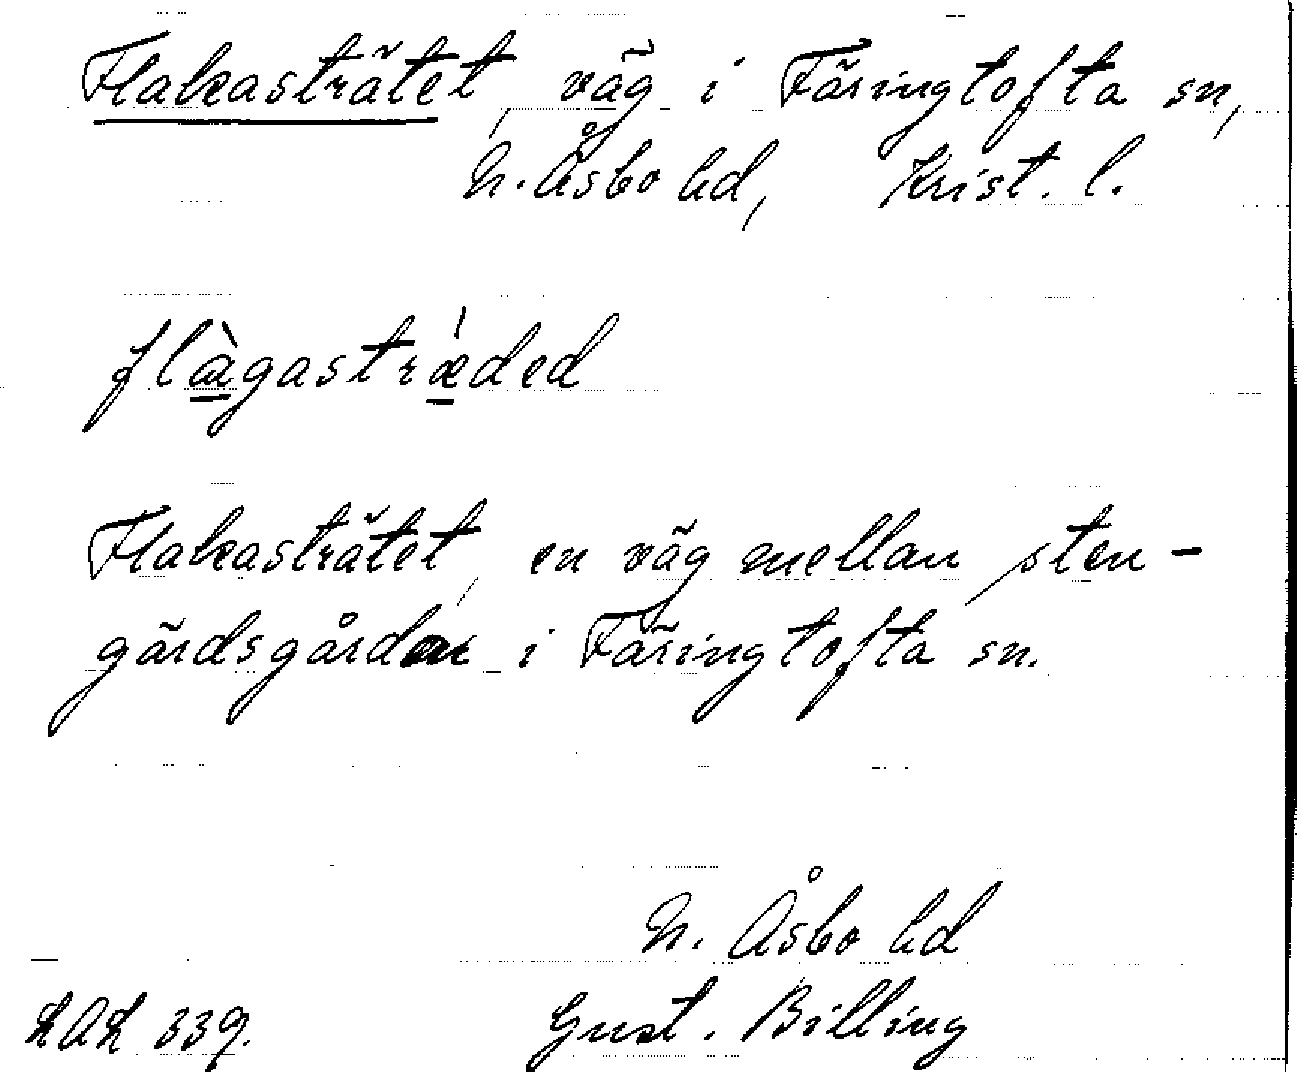 Flakasträtet, väg i Färingtofta sn,
N. Åsbo hd, Krist. l.
flàgastrǽded
Flakasträtet, en väg mellan sten-
gärdsgårdar i Färingtofta sn.
N. Åsbo hd
LAL 339. Gust. Billing